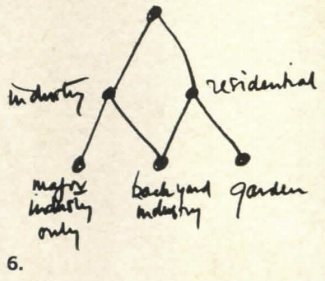 industry
residential
major
industry
only
backyard
industry
garden
6.